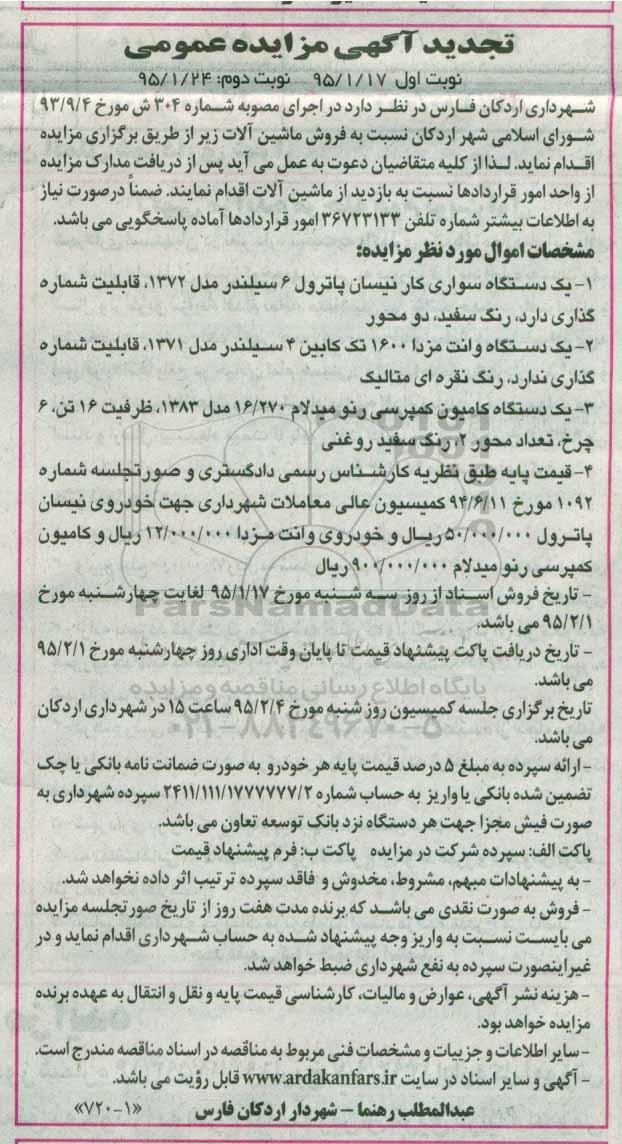 تجدید آگهی مزایده عمومی
نوبت اول ۹۵/۱/۱۷ نوبت دوم: ۹۵/۱/۲۴
شهرداری اردکان فارس در نظر دارد در اجرای مصوبه شماره ۳۰۴ ش مورخ ۹۳/۹/۴
شورای اسلامی شهر اردکان نسبت به فروش ماشین آلات زیر از طریق برگزاری مزایده
اقدام نماید. لذا از کلیه متقاضیان دعوت به عمل می آید پس از دریافت مدارک مزایده
از واحد امور قراردادها نسبت به بازدید از ماشین آلات اقدام نمایند. ضمناً درصورت نیاز
به اطلاعات بیشتر شماره تلفن ۳۶۷۲۳۱۳۳ امور قراردادها آماده پاسخگویی می باشد.
مشخصات اموال مورد نظر مزایده:
۱- یک دستگاه سواری کار نیسان پاترول ۶ سیلندر مدل ۱۳۷۲، قابلیت شماره
گذاری دارد، رنگ سفید، دو محور
۲- یک دستگاه وانت مزدا ۱۶۰۰ تک کابین ۴ سیلندر مدل ۱۳۷۱، قابلیت شماره
گذاری ندارد، رنگ نقره ای متالیک
۳- یک دستگاه کامیون کمپرسی رنو میدلام ۱۶/۲۷۰ مدل ۱۳۸۳، ظرفیت ۱۶ تن، ۶
چرخ، تعداد محور ۲، رنگ سفید روغنی
۴- قیمت پایه طبق نظریه کارشناس رسمی دادگستری و صورتجلسه شماره
۱۰۹۲ مورخ ۹۴/۶/۱۱ کمیسیون عالی معاملات شهرداری جهت خودروی نیسان
پاترول ۵۰/۰۰۰/۰۰۰ ریال و خودروی وانت مزدا ۱۲/۰۰۰/۰۰۰ ریال و کامیون
کمپرسی رنو میدلام ۹۰۰/۰۰۰/۰۰۰ ریال
- تاریخ فروش اسناد از روز سه شنبه مورخ ۹۵/۱/۱۷ لغایت چهارشنبه مورخ
۹۵/۲/۱ می باشد.
ParsNamadData
- تاریخ دریافت پاکت پیشنهاد قیمت تا پایان وقت اداری روز چهارشنبه مورخ ۹۵/۲/۱
می باشد.
پایگاه اطلاع رسانی مناقصه و مزایده
تاریخ برگزاری جلسه کمیسیون روز شنبه مورخ ۹۵/۲/۴ ساعت ۱۵ در شهرداری اردکان
می باشد.
- ارائه سپرده به مبلغ ۵ درصد قیمت پایه هر خودرو به صورت ضمانت نامه بانکی یا چک
تضمین شده بانکی یا واریز به حساب شماره ۲۴۱۱/۱۱۱/۱۷۷۷۷۷۷/۲ سپرده شهرداری به
صورت فیش مجزا جهت هر دستگاه نزد بانک توسعه تعاون می باشد.
پاکت الف: سپرده شرکت در مزایده پاکت ب: فرم پیشنهاد قیمت
- به پیشنهادات مبهم، مشروط، مخدوش و فاقد سپرده ترتیب اثر داده نخواهد شد.
- فروش به صورت نقدی می باشد که برنده مدت هفت روز از تاریخ صورتجلسه مزایده
می بایست نسبت به واریز وجه پیشنهاد شده به حساب شهرداری اقدام نماید و در
غیراینصورت سپرده به نفع شهرداری ضبط خواهد شد.
- هزینه نشر آگهی، عوارض و مالیات، کارشناسی قیمت پایه و نقل و انتقال به عهده برنده
مزایده خواهد بود.
- سایر اطلاعات و جزییات و مشخصات فنی مربوط به مناقصه در اسناد مناقصه مندرج است.
- آگهی و سایر اسناد در سایت www.ardakanfars.ir قابل رؤیت می باشد.
عبدالمطلب رهنما - شهردار اردکان فارس «۷۲۰-۱»